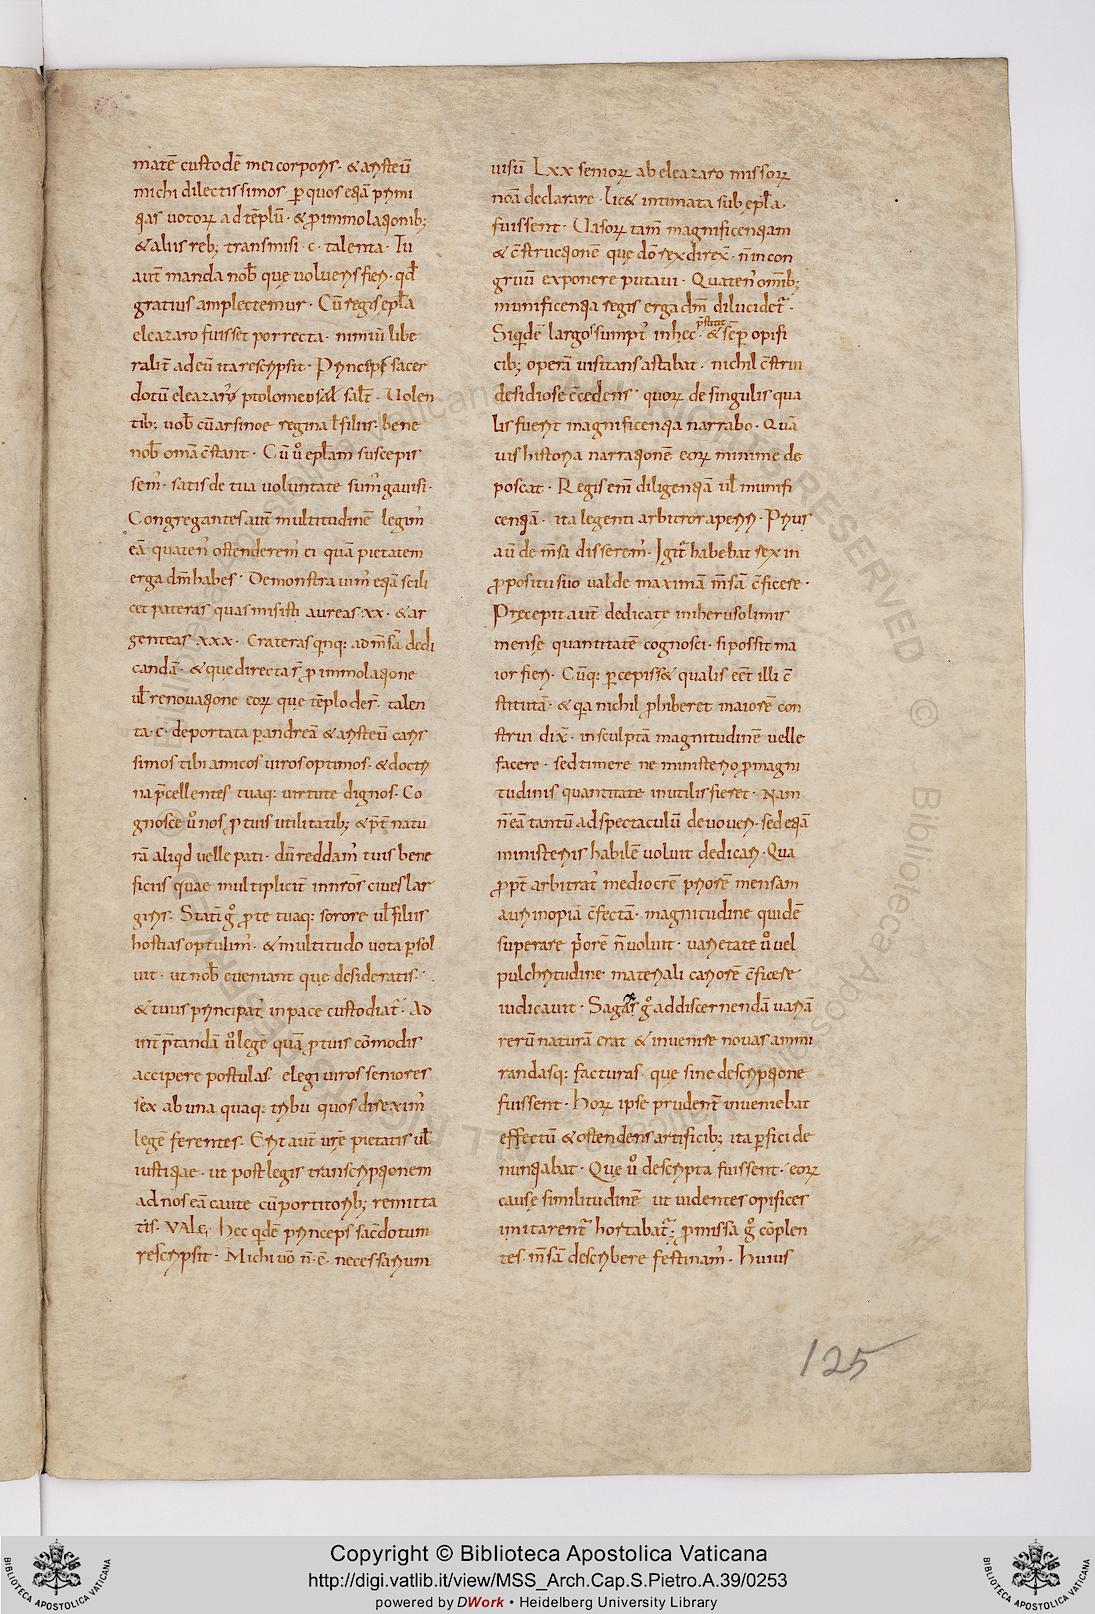 matē custodē mei corporis. & aristeū
michi dilectissimos ꝑ quos etiā primi
tias votoꝝ ad tēplū. & ꝓ immolationib;
& aliis reb; transmisi. c. talenta. Tu
aut̄ manda nob̄ quę volueris fieri. qđ
gratius amplectemur. Cū regis epl̄a
eleazaro fuisset porrecta. nimiū libe
ralit̄ ad eū ita rescripsit. Princeps sacer
dotū eleazarus ptolomeo sal̄t. Volen
tib; vob̄ cū arsinoe regina l̄ filiis. bene
nob̄ om̄a c̄stant. Cū ů epl̄am suscepis
sem̾. satis de tua voluntate sum̾ gavisi.
Congregantes aut̄ multitudinē legim̾
eā quaten̾ ostenderem̾ ei quā pietatem
erga dm̄ habes. Demonstravim̾ etiā scili
cet pateras quas misisti aureas .xx. & ar
genteas .xxx. Crateras qinq: ad m̄sā dedi
candā. & que directa sī ꝓ immolatione
ul̄ renovatione eoꝝ que tēplo deest. talen
ta .c. deportata ꝑ andreā & aristeū caris
simos tibi amicos viros optimos. & doctri
na p̄cellentes tuaq: virtute dignos. Co
gnosce ů nos ꝓ tuis utilitatib; & p̄t̄ natu
rā aliqd velle pati. dū reddam̾ tuis bene
ficiis quae multiplicit̄ in nr̄os cives lar
giris. Statī g̊ ꝓ te tuaq: sorore ul̄ filiis
hostias optulim̾. & multitudo vota ꝑsol
vit. ut nob̄ eveniant que desideratis.
& tuus principat̾ in pace custodiat̾. Ad
int̄p̄tandā ů lege quā ꝓ tuis cōmodis
accipere postulas. elegi viros seniores
sex ab una quaq: tribu quos direxim̾
legē ferentes. Erit aut̄ vr̄ę pietatis ul̄
iustitiae. ut post legis transcriptionem
ad nos eā caute cū portitorib; remitta
tis. VALE. Hęc qdē princeps sac̄dotum
rescripsit. Michi ūo n̄. ē. necessarium
visū Lxx senioꝝ ab eleazaro missoꝝ
noīa declarare. lic& intimata sub epl̄a.
fuissent. Vasoꝝ tam̄ magnificentiam
& c̄structionē quę dō rex direx̄. n̄ in con
gruū exponere putavi. Quaten̾ om̄ib;
munificentia regis erga dm̄ dilucidet̾.
Siqdē largos sumpt̾ in hęc p̄stitit & sēp opifi
cib; operā visitans astabat. nichil c̄strui
desidiose c̄cedens. quoꝝ de singulis qua
lis fuerit magnificentia narrabo. Quā
vis historia narrationē eoꝝ minime de
poscat. Regis em̄ diligentiā ul̄ munifi
centiā. ita legenti arbitror aperiri. Prius
aū de m̄sa disserem̾. Igit̾ habebat rex in
ꝓpositu suo valde maximā m̄sā c̄ficere.
Pręcepit aut̄ dedicatę in hierusolimis
mensę quantitatē cognosci. si possit ma
ior fieri. Cūq: ꝑcepiss& qualis eēt illi c̄
stitutā. & qa nichil ꝓhiberet maiorē con
strui dix̄. in sculptā magnitudinē velle
facere. sed timere ne ministerio ꝓ magni
tudinis quantitate inutilis fieret. Nam
n̄ eā tantū ad spectaculū devoveri. sed etiā
ministeriis habilē voluit dedicari. Qua
ꝓpt̄ arbitrat̾ mediocrē priorē mensam
auri inopiā c̄fectā. magnitudine quidē
superare p̄orē n̄ voluit. varietate ů vel
pulchritudine materiali cariorē c̄ficere
iudicavit. Sagax g̊ ad discernendā variā
rerū naturā erat & invenire novas ammi
randasq: facturas. quę sine descriptione
fuissent. Hoꝝ ipse prudent̄ inveniebat
effectū & ostendens artificib; ita ꝑfici de
nuntiabat. Que ů descripta fuissent. eoꝝ
causę similitudinē ut videntes opifices
imitarent̾ hortabat̾. ꝓmissa g̊ cōplen
tes. m̄sā describere festinam̾. Huius
125
Copyright © Biblioteca Apostolica Vaticana
http://digi.vatlib.it/view/MSS_Arch.Cap.S.Pietro.A.39/0253
powered by DWork • Heidelberg University Library